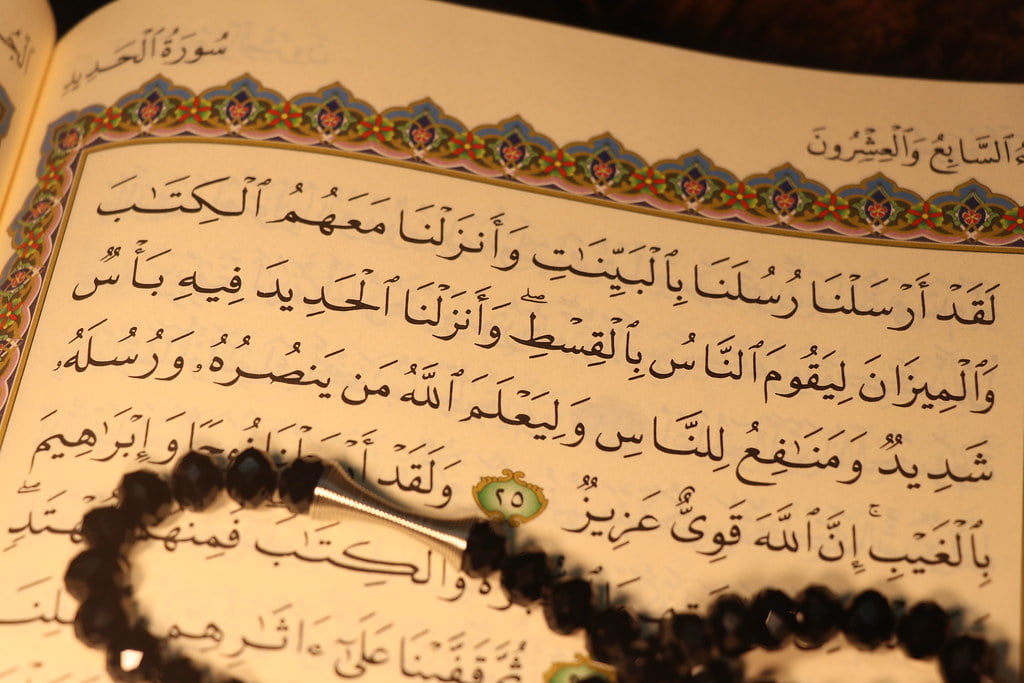 سُورَةُ ٱلْحَدِيدِ
ٱلسَّابِعُ وَٱلْعِشْرُونَ
لَقَدْ أَرْسَلْنَا رُسُلَنَا بِٱلْبَيِّنَٰتِ وَأَنزَلْنَا مَعَهُمُ ٱلْكِتَٰبَ
وَٱلْمِيزَانَ لِيَقُومَ ٱلنَّاسُ بِٱلْقِسْطِۖ وَأَنزَلْنَا ٱلْحَدِيدَ فِيهِ بَأْسٌ
شَدِيدٌ وَمَنَٰفِعُ لِلنَّاسِ وَلِيَعْلَمَ ٱللَّهُ مَن يَنصُرُهُۥ وَرُسُلَهُۥ
بِٱلْغَيْبِۚ إِنَّ ٱللَّهَ قَوِىٌّ عَزِيزٌ ٢٥ وَلَقَدْ نُوحًا وَإِبْرَٰهِيمَ
وَٱلْكِتَٰبَ فَمِنْهُم
ثُمَّ قَفَّيْنَا عَلَىٰٓ ءَاثَٰرِهِم